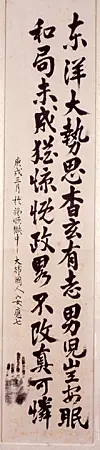 東洋大勢思杳玄有志男兒豈安眠
和局未成猶慷慨政略不改真可憐
庚戌三月 於旅順獄中 大韓國人 安重根